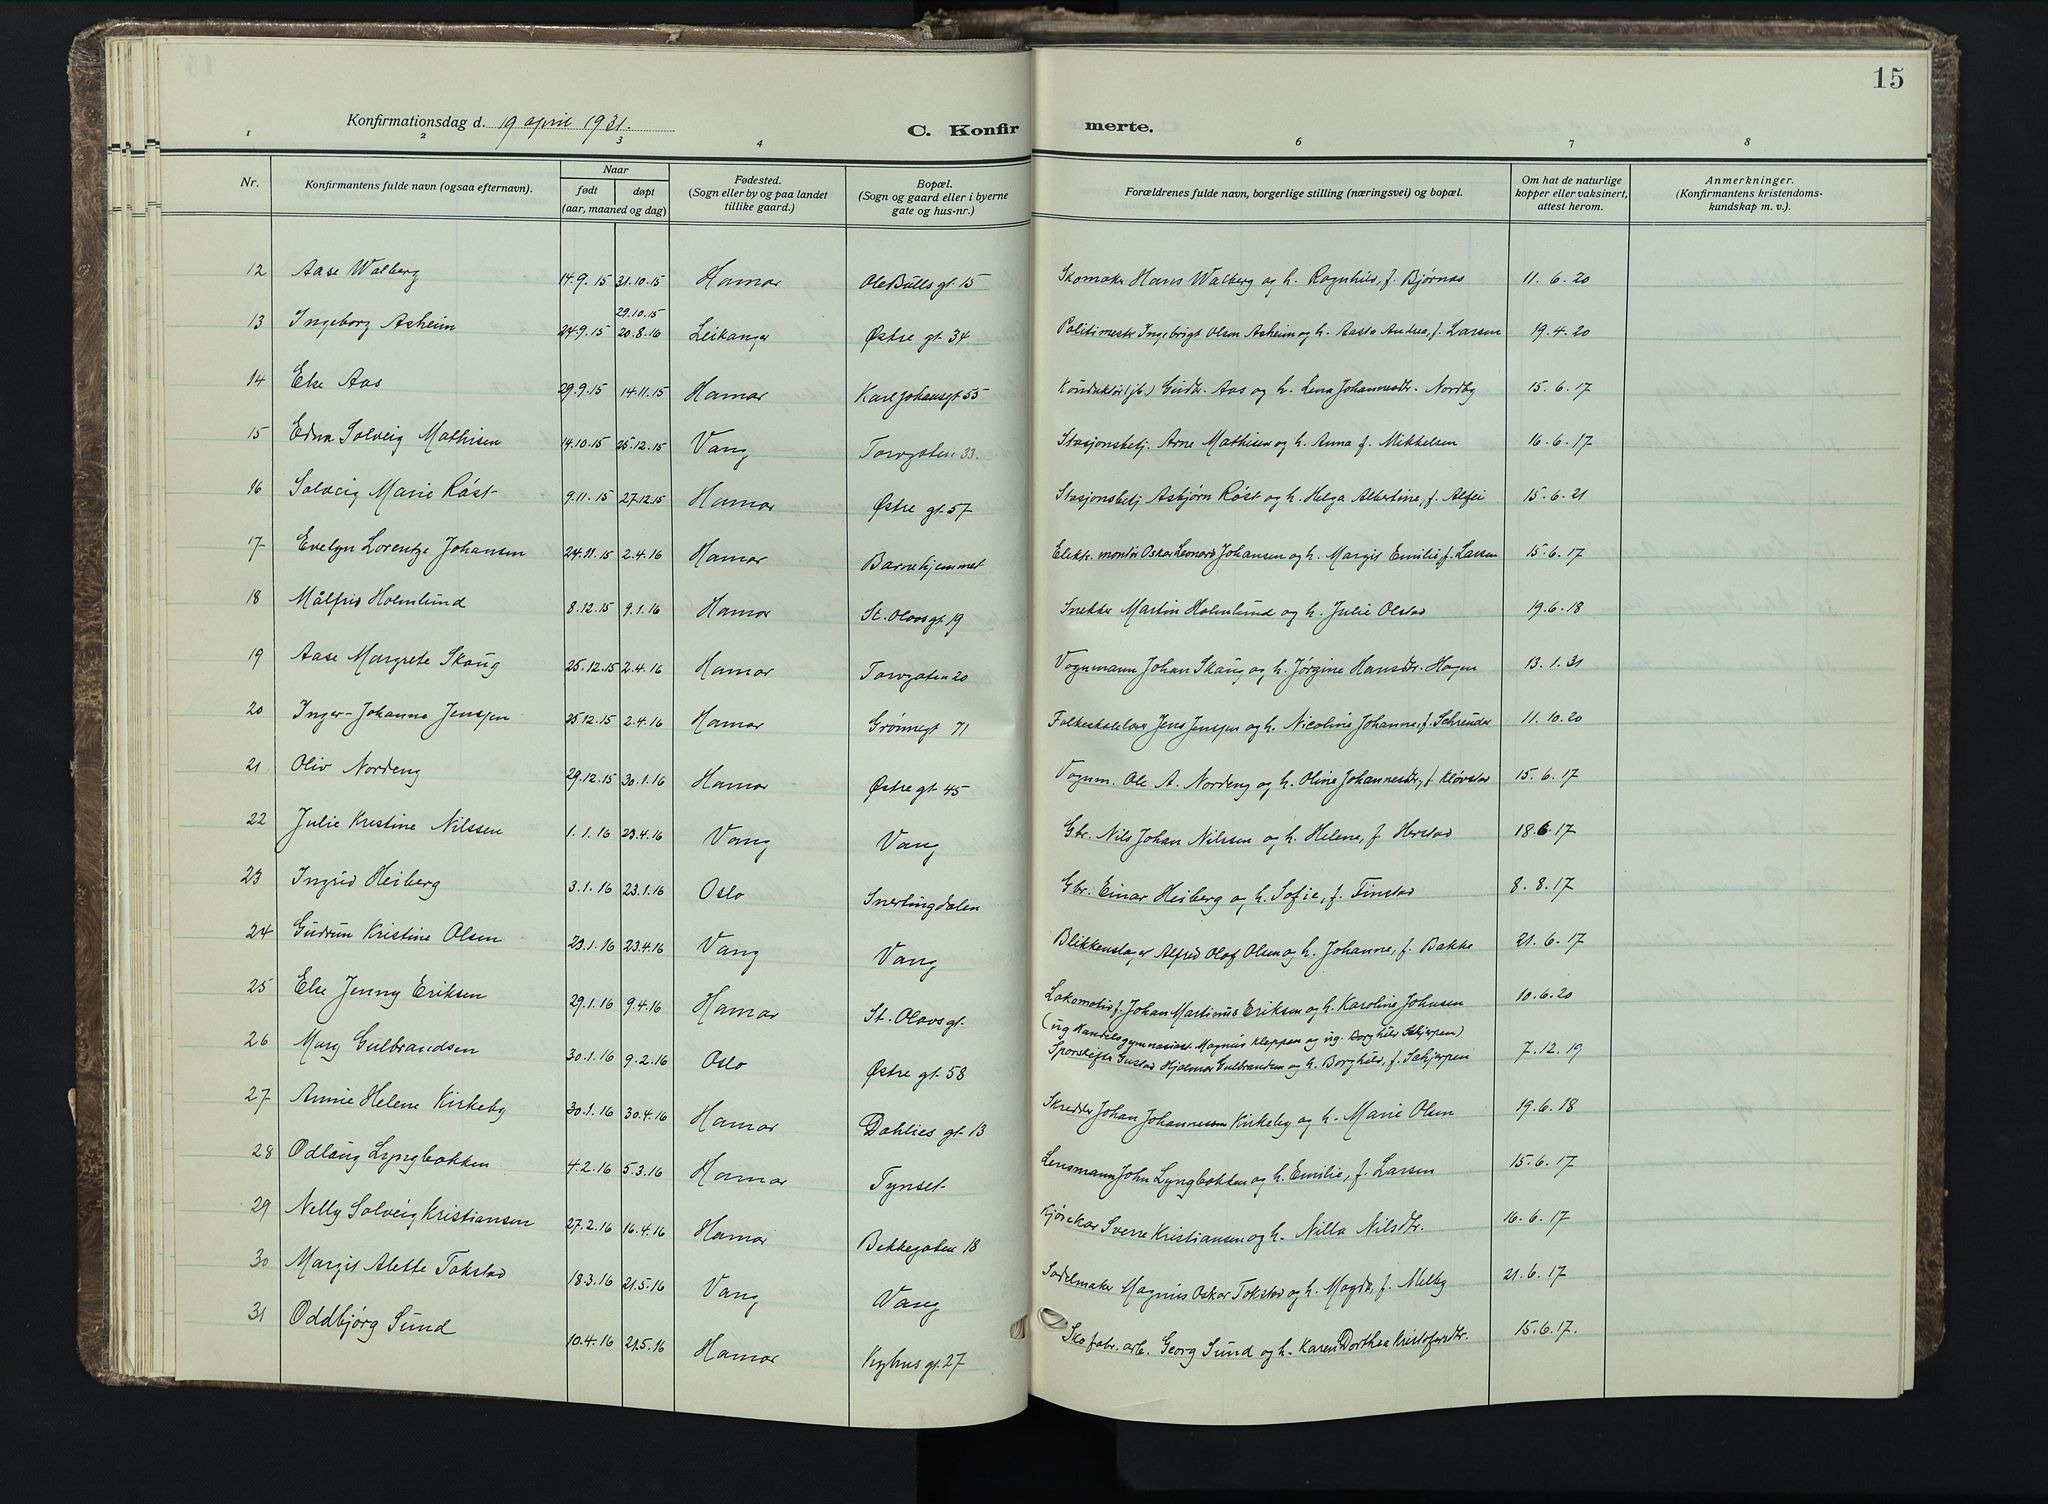 15
Konfirmationsdag d. 19 april 1931.
C. Konfirmerte.
1 2 3 4 6 7 8
Nr. | Konfirmantens fulde navn (ogsaa efternavn). | Naar født døpt (aar, maaned og dag) | Fødested. (Sogn eller by og paa landet tillike gaard.) | Bopæl. (Sogn og gaard eller i byerne gate og hus-nr.) | Forældrenes fulde navn, borgerlige stilling (næringsvei) og bopæl. | Om hat de naturlige kopper eller vaksinert, attest herom. | Anmerkninger. (Konfirmantens kristendomskundskap m. v.).
12 Aase Walberg 14.9.15 31.10.15 Hamar Ole Bulls gt 15 Skomaker Hans Walberg og h. Ragnhild, f. Bjørnås 11.6.20
13 Ingeborg Asheim 24.9.15 29.10.15 20.8.16 Leikanger Østre gt. 34 Politimester Ingebrigt Olsen Asheim og h. Aasta Andrea, f. Larsen 19.4.20
14 Else Aas 29.9.15 14.11.15 Hamar Karl Johansgt 55 Konduktør (jb.) Gudbr. Aas og h. Lena Johannesdr. Nordby 15.6.17
15 Edna Solveig Mathisen 14.10.15 25.12.15 Vang Torvgaten 33. Stasjonsbetj. Arne Mathisen og h. Anna f. Mikkelsen 16.6.17
16 Solveig Marie Røst 9.11.15 27.12.15 Hamar Østre gt. 57 Stasjonsbetj Asbjørn Røst og h. Helga Albertine, f. Alfei 15.6.21
17 Evelyn Lorentze Johansen 24.11.15 2.4.16 Hamar Barnehjemmet Elektr. montør Oskar Leonard Johansen og h. Margit Emilie, f. Larsen 15.6.17
18 Målfrid Holmlund 8.12.15 9.1.16 Hamar St. Olavsgt 19 Snekker Martin Holmlund og h. Julie Olstad 19.6.18
19 Aase Margrete Skaug 25.12.15 2.4.16 Hamar Torvgaten 20 Vognmann Johan Skaug og h. Jørgine Hansdr. Hagen 13.1.31
20 Inger-Johanne Jenssen 25.12.15 2.4.16 Hamar Grønnegt 71 Folkeskolelærer Jens Jenssen og h. Nicoline Johanne, f. Schreuder 11.10.20
21 Oliv Nordeng 29.12.15 30.1.16 Hamar Østre gt 45 Vognm. Ole A. Nordeng og h. Oline Johannesdr, f. Kløvstad 15.6.17
22 Julie Kristine Nilssen 1.1.16 23.4.16 Vang Vang Gbr. Nils Johan Nilssen og h. Helene, f. Herstad 18.6.17
23 Ingrid Heiberg 3.1.16 23.1.16 Oslo Snertingdalen Gbr. Einar Heiberg og h. Sofie, f. Finstad 8.8.17
24 Gudrun Kristine Olsen 23.1.16 23.4.16 Vang Vang Blikkenslager Alfred Olaf Olsen og h. Johanne, f. Bakke 21.6.17
25 Else Jenny Eriksen 29.1.16 9.4.16 Hamar St. Olavs gt. Lokomotivf. Johan Martinus Eriksen og h. Karoline Johnsen 10.6.20
(ug Handelsgymnasiast Magnus Kleppen og ug. Borghild Schjerpen)
26 Mary Gulbrandsen 30.1.16 9.2.16 Oslo Østre gt. 58 Sporskifter Gustav Hjalmar Gulbrandsen og h. Borghild, f. Schjerpen 7.12.19
27 Annie Helene Kirkeby 30.1.16 30.4.16 Hamar Dahlies gt. 13 Skredder Johan Johannessen Kirkeby og h. Marie Olsen 19.6.18
28 Odlaug Lyngbakken 4.2.16 5.3.16 Hamar Tynset Lensmann John Lyngbakken og h. Emilie, f. Larsen 15.6.17
29 Nelly Solveig Kristiansen 27.2.16 16.4.16 Hamar Bekkegaten 18 Kjørekar Sverre Kristiansen og h. Nilla Nilsdtr. 16.6.17
30 Margit Alette Tokstad 18.3.16 21.5.16 Vang Vang Sadelmaker Magnus Oskar Tokstad og h. Magda, f. Melby 21.6.17
31 Oddbjørg Sund 10.4.16 21.5.16 Hamar Kyhus gt. 27 Skofabr. arb. Georg Sund og h. Karen Dorthea Kristofersdtr. 15.6.17.